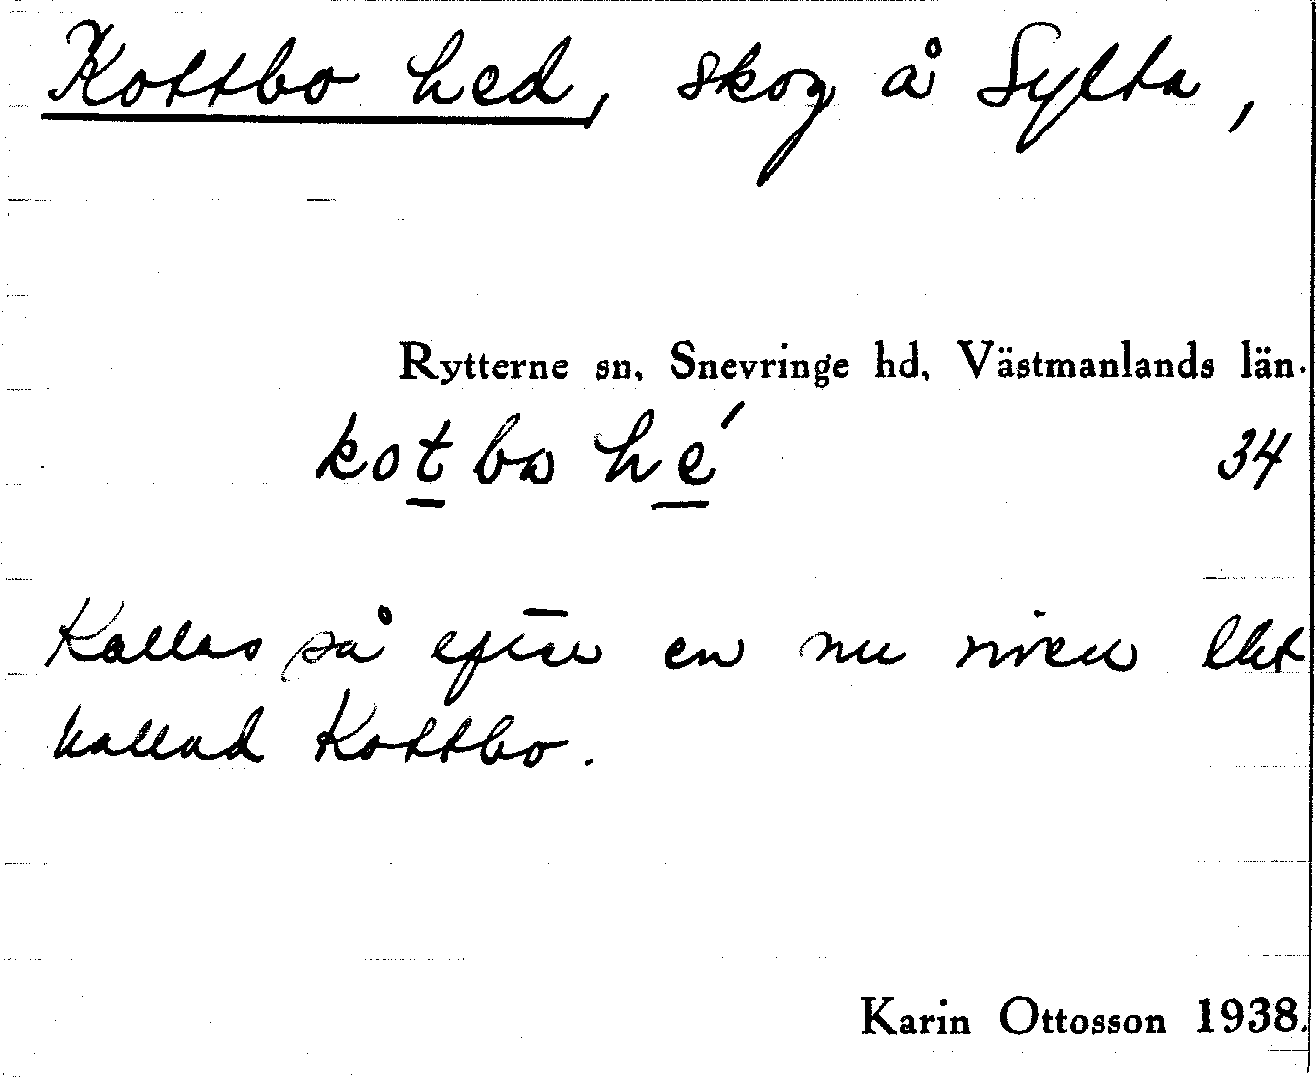 Kottbo hed, skog å Sylta,
Rytterne sn, Snevringe hd, Västmanlands län.
kotbo hé 34
Kallas så efter en nu riven lht
kallad Kottbo.
Karin Ottosson 1938.